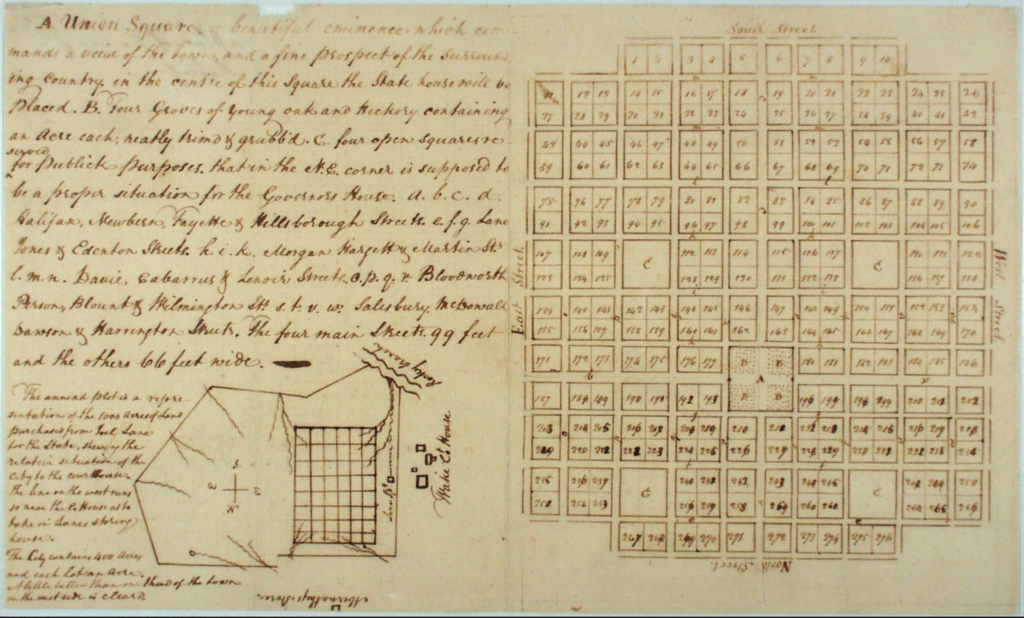 A Union Square, a beautiful eminence which com
mands a view of the town, and a fine prospect of the surround
ing Country, in the centre of this Square the State house will be
placed. B. Four Groves of young oak and Hickory containing
an Acre each, neatly trim'd & grubb'd. C. four open squares re
served
for publick purposes. that in the N.E. corner is supposed to
be a proper situation for the Governors House. a. b. c. d
Halifax, Newbern, Fayette & Hillsborough Streets. e. f. g. Lane
Jones & Edenton Streets. h. i. k. Morgan Hargett & Martin Sts
l. m. n. Davie, Cabarrus & Lenoir Streets. o. p. q. r. Bloodworth
Person, Blount & Wilmington Sts. s. t. v. w. Salesbury, McDowall
Dawson & Harrington Streets. The four main Streets 99 feet
and the others 66 feet wide.
The annexed plot is a repre
sentation of the 1000 Acres of Land
purchased from Joel Lane
for the State, shewing the
relative situation of the
City to the court House
the line on the west runs
so near the Ct House as to
take in Lanes
house.
The City contains 400 Acres
and each Lot an Acre.
A little better than one third of the town
on the west side is cleared
Rocky branch
Wake Ct House
S
E
W
N
South Street
East Street
West Street
North Street
1 2 3 4 5 6 7 8 9 10
11 12 13 14 15 16 17 18 19 20 21 22 23 24 25 26
43 44 45 46 47 48 49 50 51 52 53 54 55 56 57 58
59 60 61 62 63 64 65 66 67 68 69 70 71 72 73 74
75 76 77 78 79 80 81 82 83 84 85 86 87 88 89 90
91 92 93 94 95 96 97 98 99 100 101 102 103 104 105 106
107 108 109 C 112 113 114 115 116 C 120 121 122
123 124 125
139 140 141 142 143 144 145 146 147 148 149 150 151 152 153
155 156 157 158 159 160 161 162 163 164 165 166 167 168 169 170
171 172 173 174 175 176 177 B B 180 181 182 183 184 185 186
A
187 188 189 190 191 192 193 B B 196 197 198 199 200 201 202
203 204 205 206 207 208 209 210 211 212 213 214 215 216 217 218
219 220 221 222 223 224 225 226 227 228 229 230 231 232 233 234
235 236 237 C 240 241 242 243 244 245 C 248 249 250
267 268 269 270 271 272 273 274 275 276